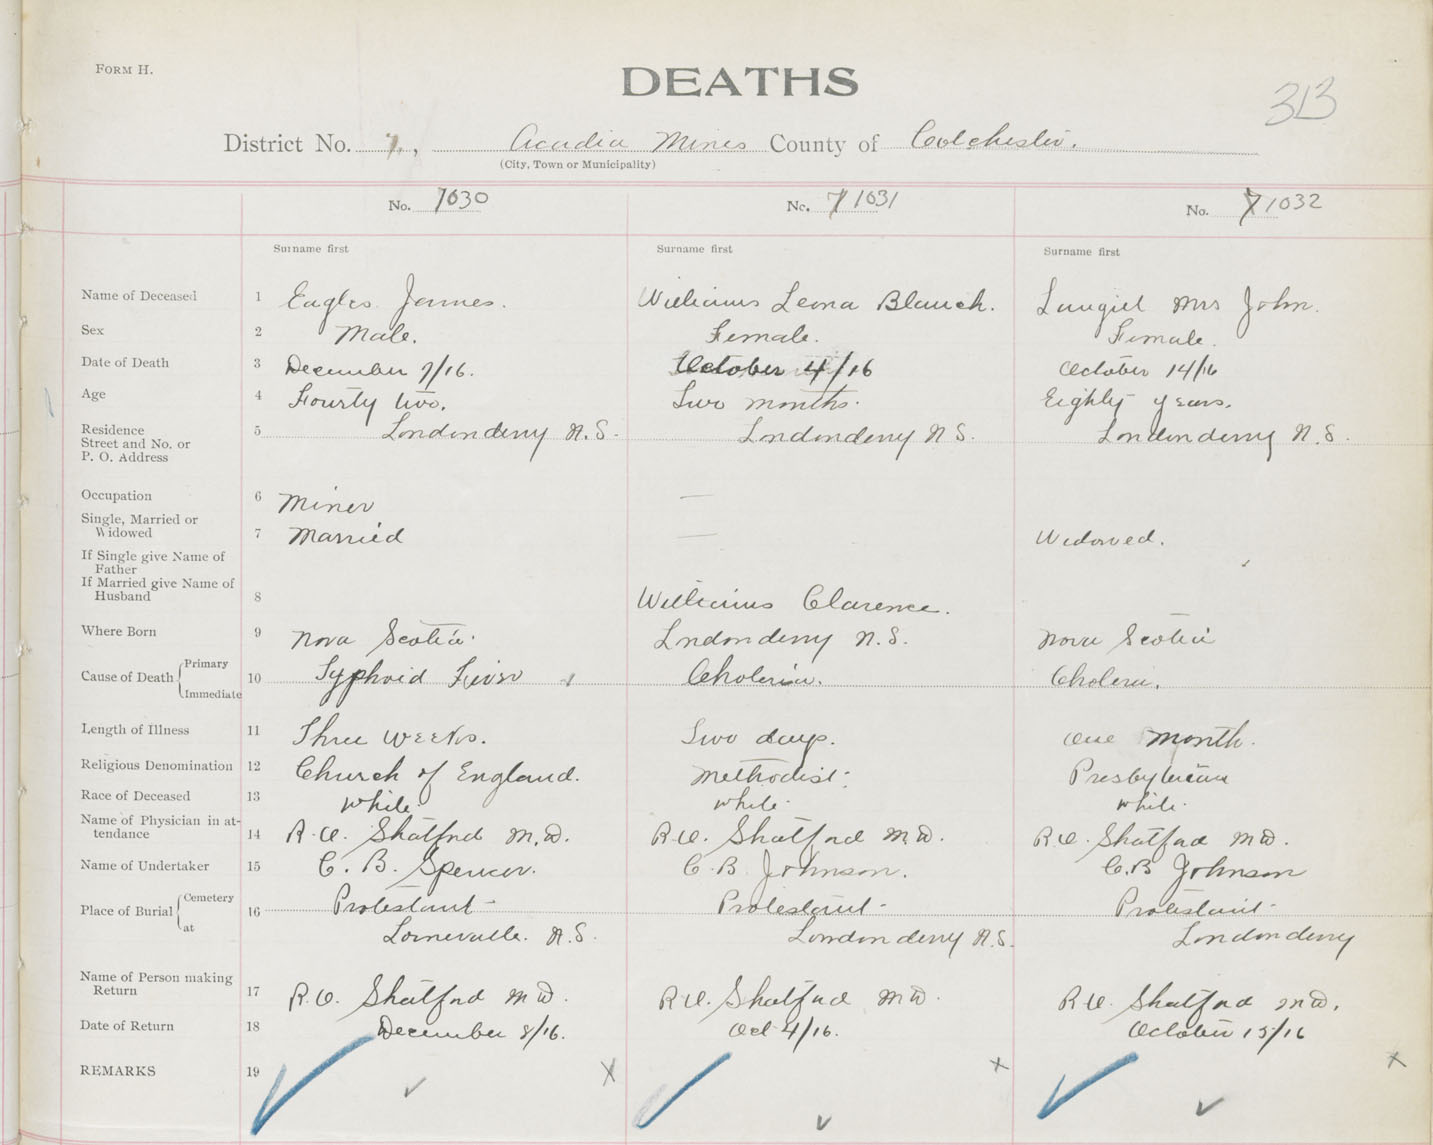 FORM H.
DEATHS
313
District No. 7, Acadia Mines County of Colchester.
(City, Town or Municipality)
No. 1030 No. 7 1031 No. 7 1032
Surname first Surname first Surname first
Name of Deceased 1 Eagles James. Williams Leona Blanch. Mrs John.
Sex 2 Male. Female. Female.
Date of Death 3 December 7/16. October 4/16 October 14/16
Age 4 Fourty two. Two months. Eighty years.
Residence
Street and No. or
P. O. Address 5 Londonderry N.S. Londonderry N S. Londonderry N.S.
Occupation 6 Miner —
Single, Married or
Widowed 7 Married — Widowed.
If Single give Name of
Father
If Married give Name of
Husband 8 Williams Clarence.
Where Born 9 Nova Scotia. Londonderry N.S. Nova Scotia
Cause of Death Primary
Immediate 10 Typhoid Fever Cholera.
Length of Illness 11 Three weeks. Two days. One month.
Religious Denomination 12 Church of England. Methodist. Presbyterian
Race of Deceased 13 White. White. White.
Name of Physician in at-
tendance 14 R.O. Shatford M.D. R.O. Shatford M.D. R.O. Shatford M.D.
Name of Undertaker 15 C. B. Spencer. C. B. Johnson. C. B Johnson
Place of Burial Cemetery 16 Protestant Protestant Protestant
at Lornevalle. N.S. Londonderry N.S. Londonderry
Name of Person making
Return 17 R.O. Shatford M.D. R.O. Shatford M.D. R.O. Shatford M.D.
Date of Return 18 December 8/16. Oct 4/16. October 15/16
REMARKS 19